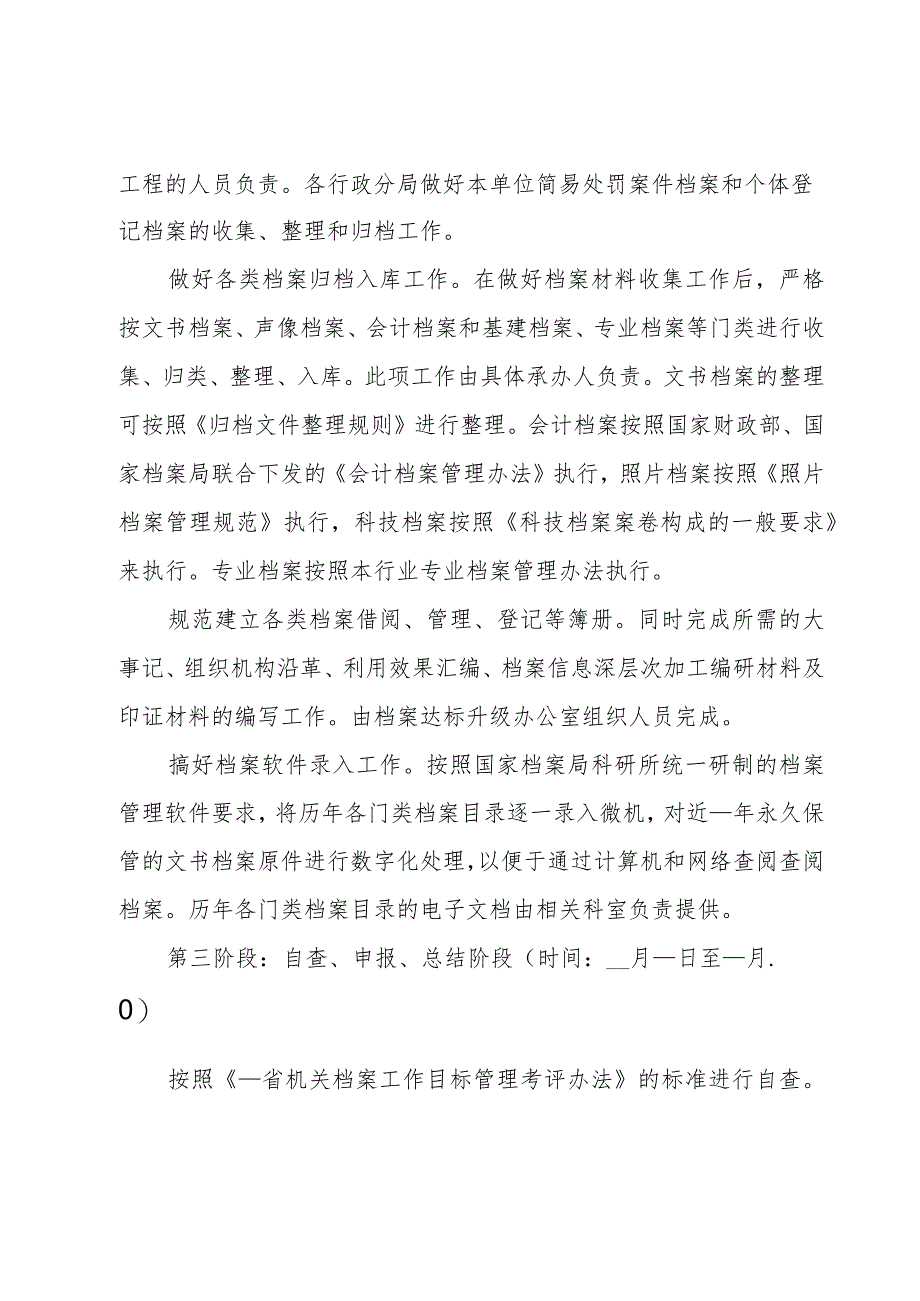 工程的人员负责。各行政分局做好本单位简易处罚案件档案和个体登
记档案的收集、整理和归档工作。
做好各类档案归档入库工作。在做好档案材料收集工作后，严格
按文书档案、声像档案、会计档案和基建档案、专业档案等门类进行收
集、归类、整理、入库。此项工作由具体承办人负责。文书档案的整理
可按照《归档文件整理规则》进行整理。会计档案按照国家财政部、国
家档案局联合下发的《会计档案管理办法》执行，照片档案按照《照片
档案管理规范》执行，科技档案按照《科技档案案卷构成的一般要求》
来执行。专业档案按照本行业专业档案管理办法执行。
规范建立各类档案借阅、管理、登记等簿册。同时完成所需的大
事记、组织机构沿革、利用效果汇编、档案信息深层次加工编研材料及
印证材料的编写工作。由档案达标升级办公室组织人员完成。
搞好档案软件录入工作。按照国家档案局科研所统一研制的档案
管理软件要求，将历年各门类档案目录逐一录入微机，对近—年永久保
管的文书档案原件进行数字化处理，以便于通过计算机和网络查阅查阅
档案。历年各门类档案目录的电子文档由相关科室负责提供。
第三阶段：自查、申报、总结阶段（时间：__月—日至—月.
0）
按照《—省机关档案工作目标管理考评办法》的标准进行自查。